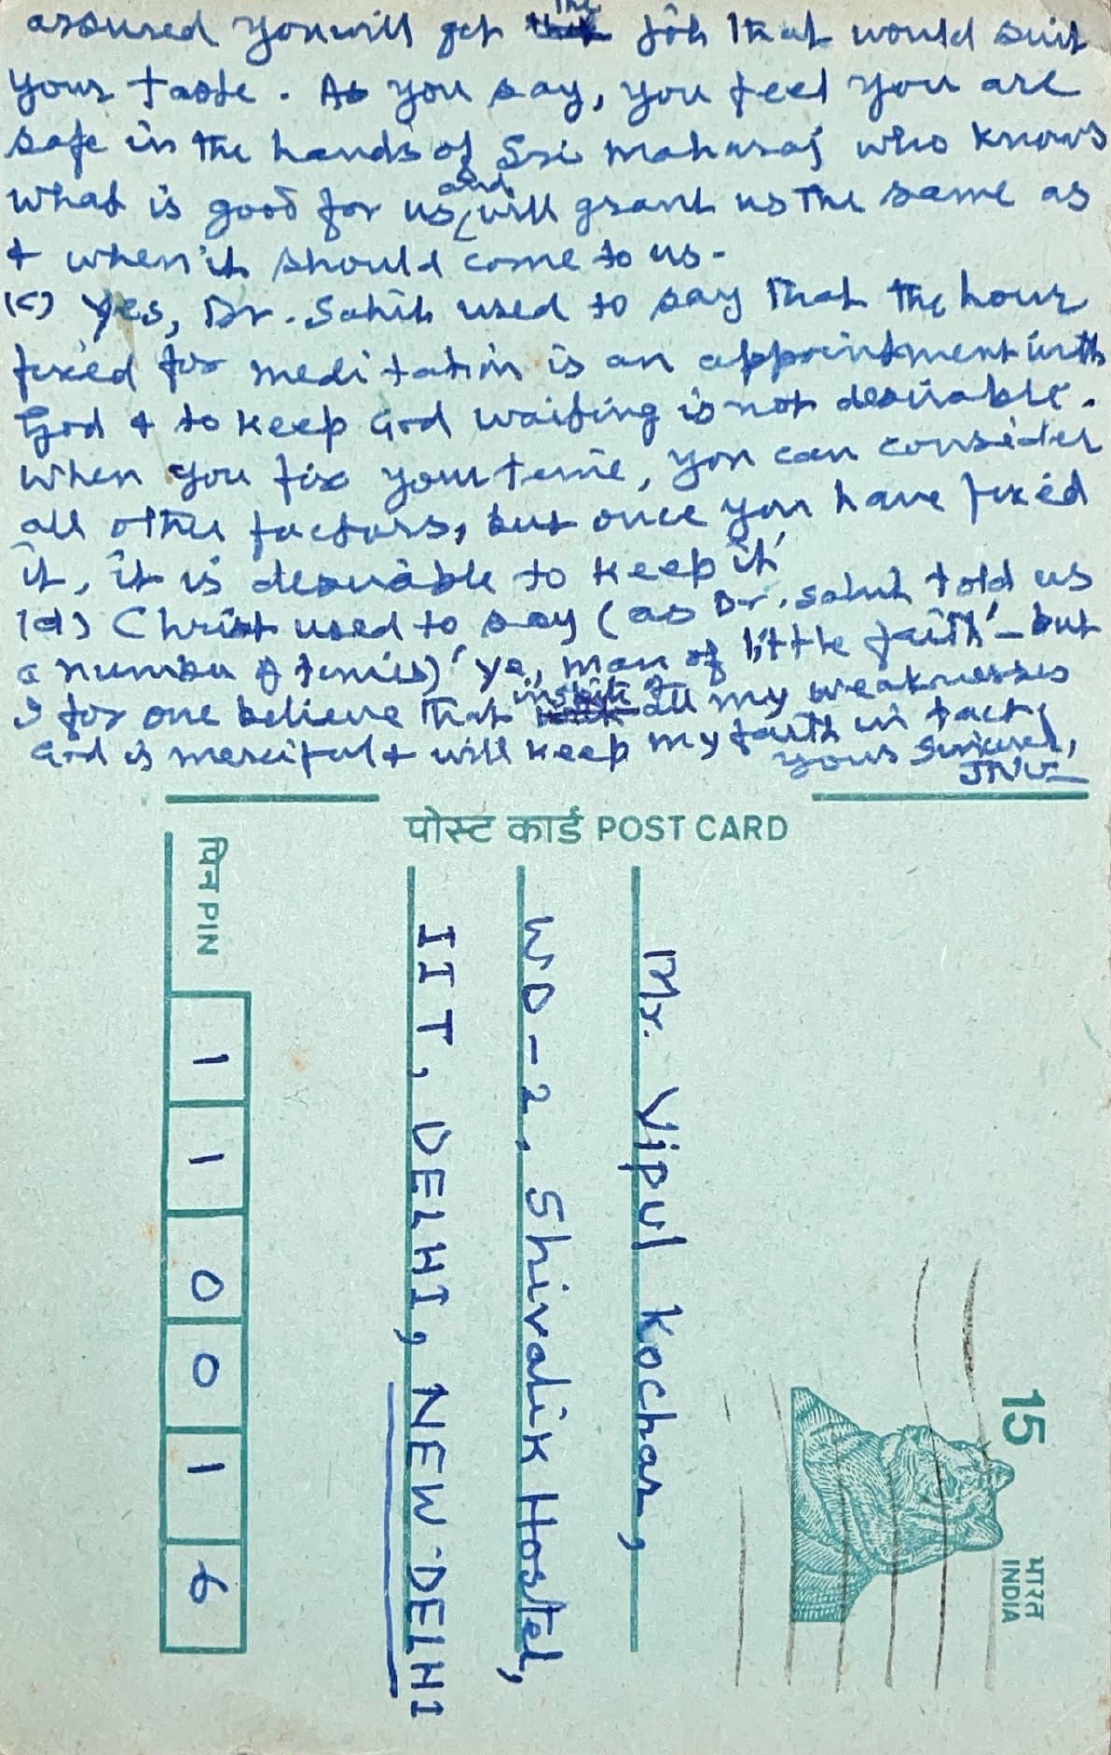 assured you will get the job that would suit
your taste. As you say, you feel you are
safe in the hands of Sri Maharaj who knows
what is good for us, and will grant us the same as
& when it should come to us.
(c) Yes, Dr. Sahib used to say that the hour
fixed for meditation is an appointment with
God & to keep God waiting is not desirable.
When you fix your time, you can consider
all other factors, but once you have fixed
it, it is desirable to keep it.
(d) Christ used to say (as Dr. Sahib told us
a number of times) 'Ye, man of little faith' - but
I for one believe that inspite of all my weaknesses
God is merciful & will keep my faith in tact.
Yours Sincerely,
पोस्ट कार्ड POST CARD
Mr. Vipul Kochar,
WD-2, Shivalik Hostel,
IIT, DELHI, NEW DELHI
पिन PIN
1 1 0 0 1 6
15
भारत
INDIA